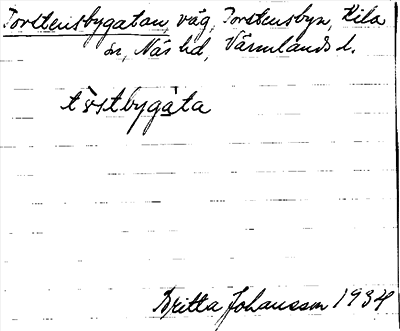 Torstensbygatan, väg, Torstensbyn, Kila
sn, Näs hd, Värmlands l.
tɔ̀stbygàta
Britta Johansson 1934